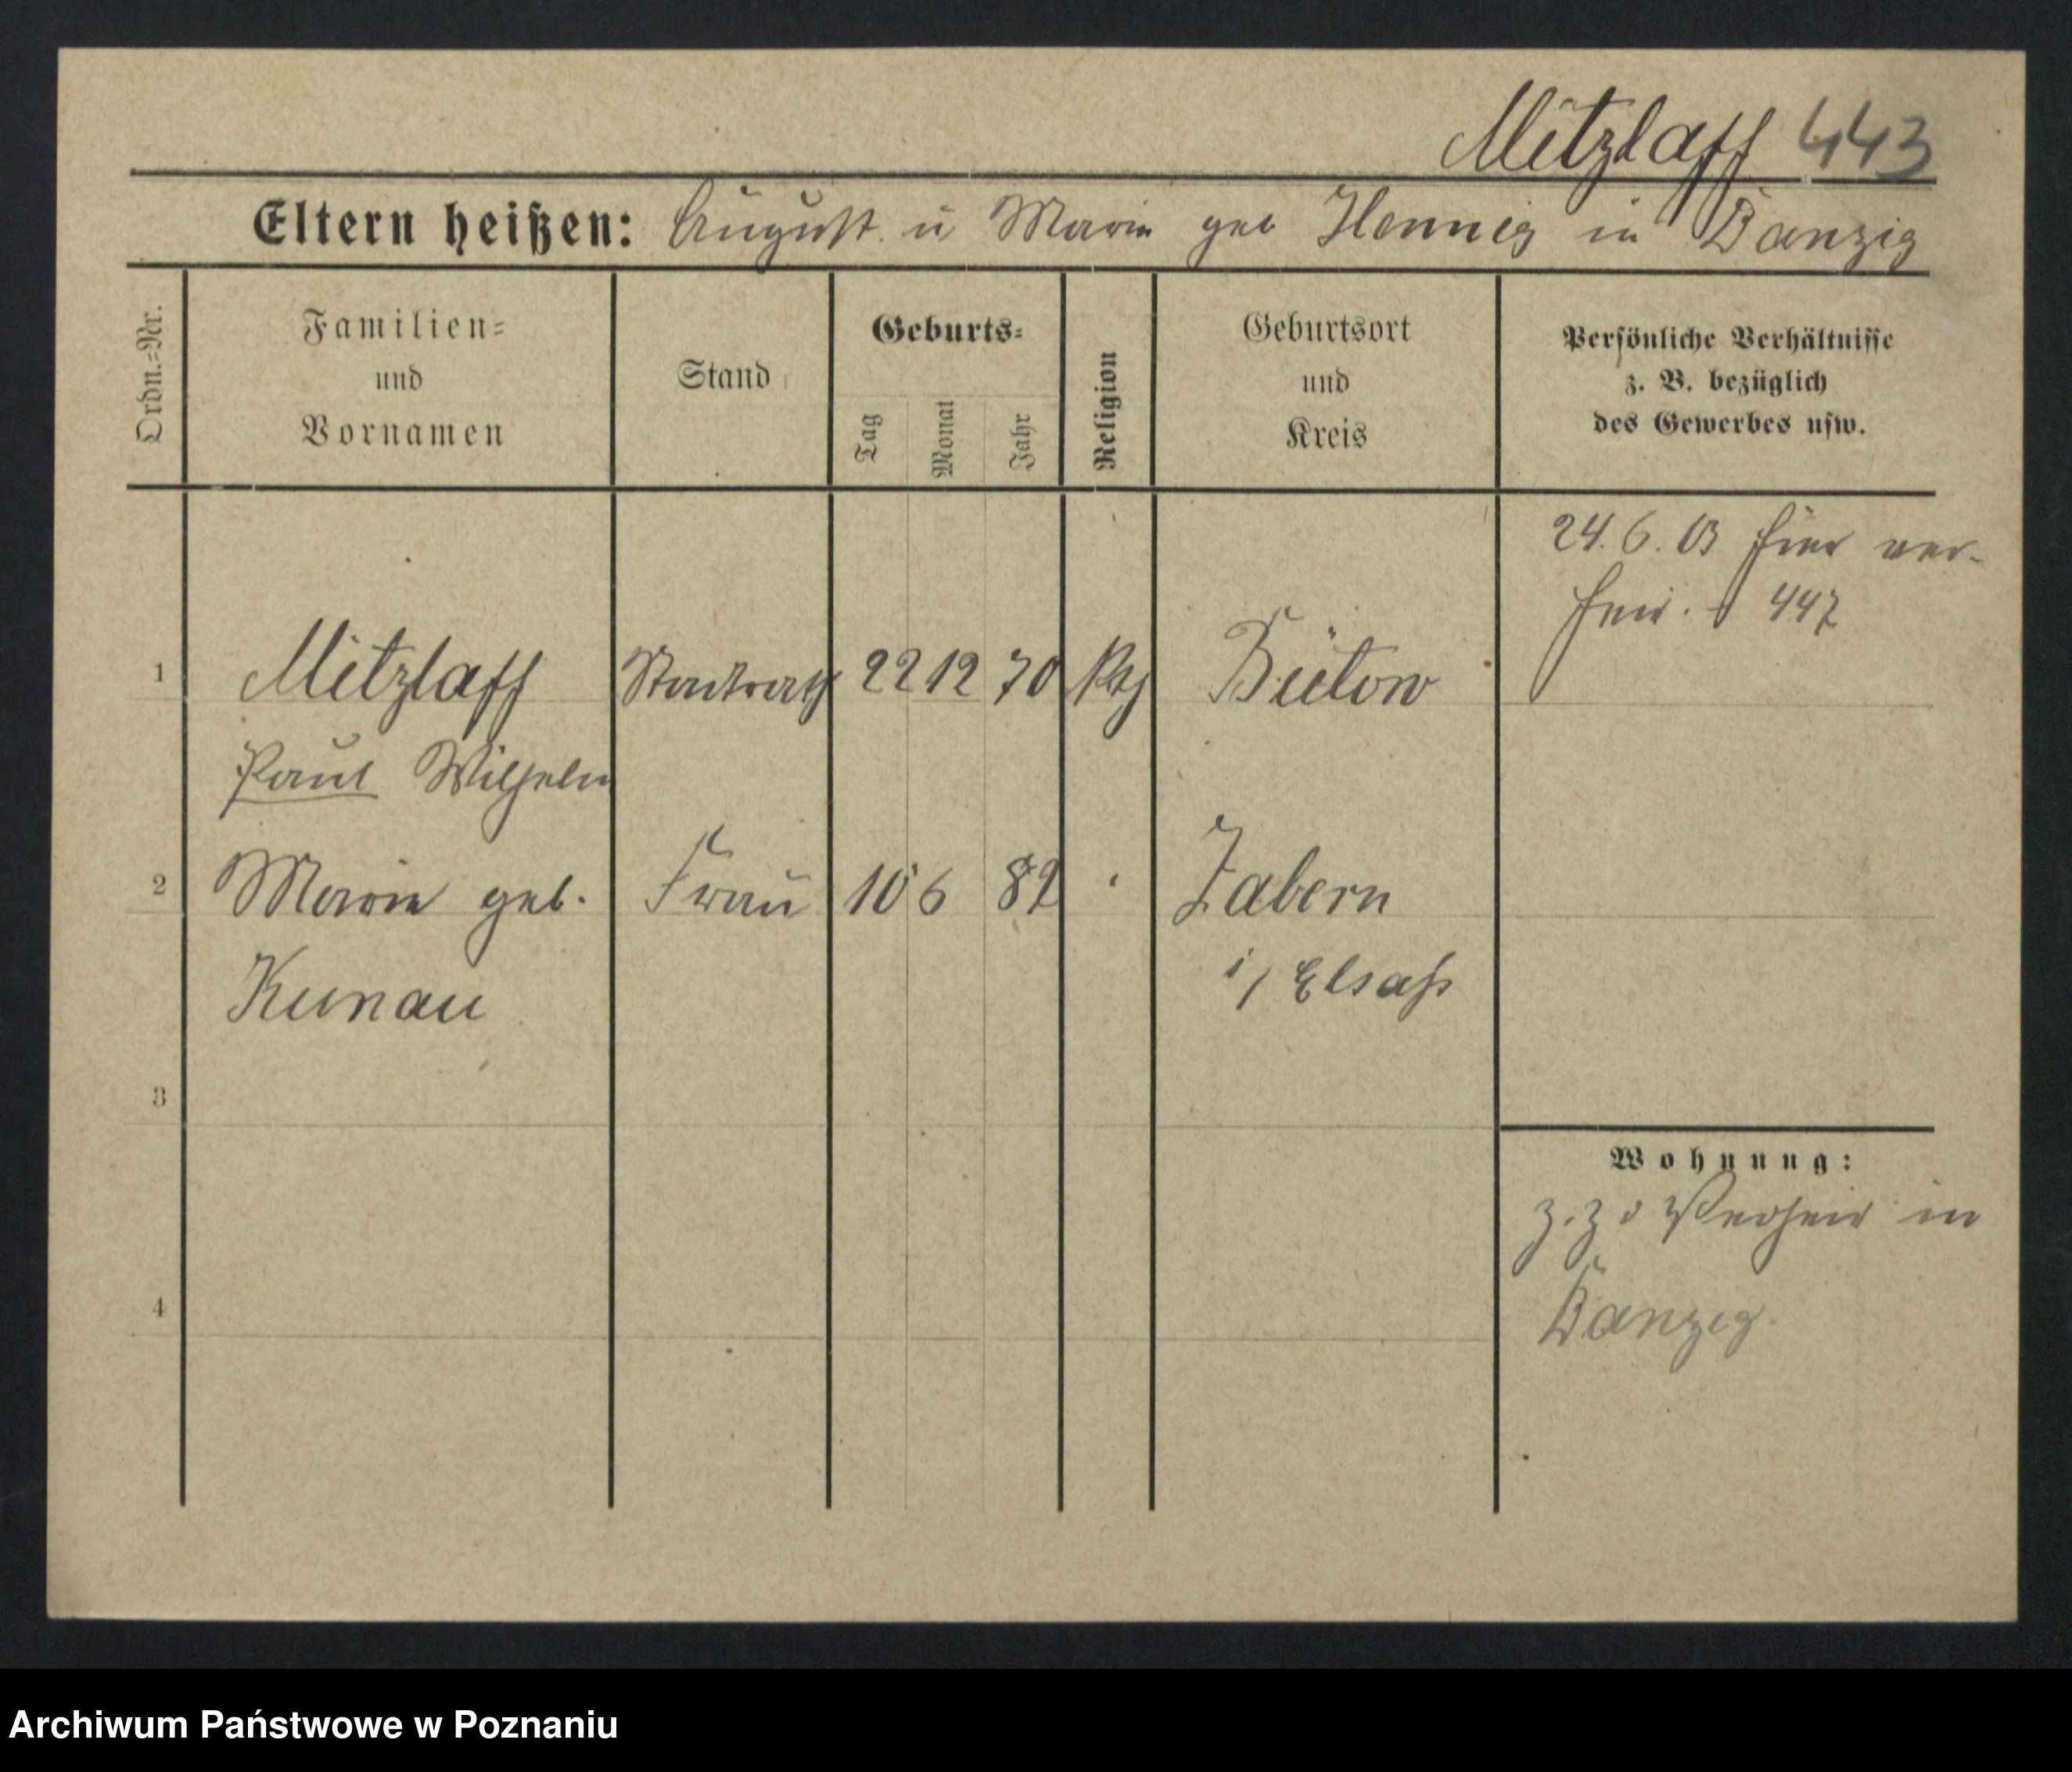 Mitzlaff 443
Eltern heißen: August u Marie geb Hennig in Danzig
Ordn.=Nr.
Familien=
und
Vornamen
Stand
Geburts=
Tag
Monat
Jahr
Religion
Geburtsort
und
Kreis
Persönliche Verhältnisse
z. B. bezüglich
des Gewerbes usw.
24. 6. 03 hier ver-
heir. 447
1 Mitzlaff Stadtrath 22 12 70 Bütow
Paul Wilhelm
2 Marie geb. Frau 10 6 82 Zabern
Kunau i/ Elsaß
3
4
Wohnung:
z. Z. d Verheir in
Danzig.
Archiwum Państwowe w Poznaniu